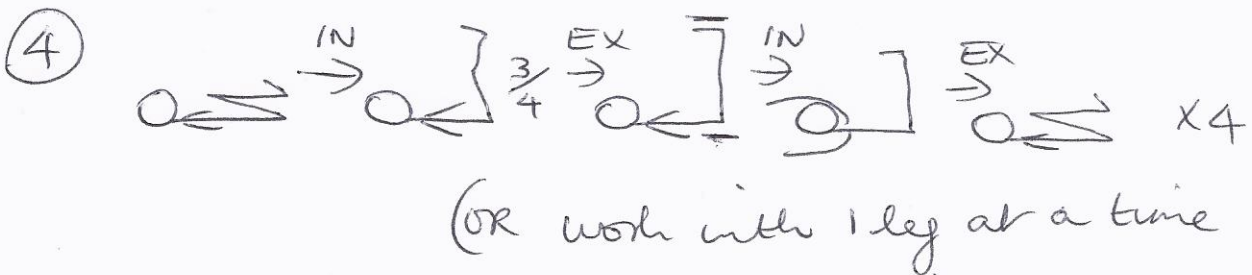 4 IN 3/4 EX IN EX x4
(OR work with 1 leg at a time